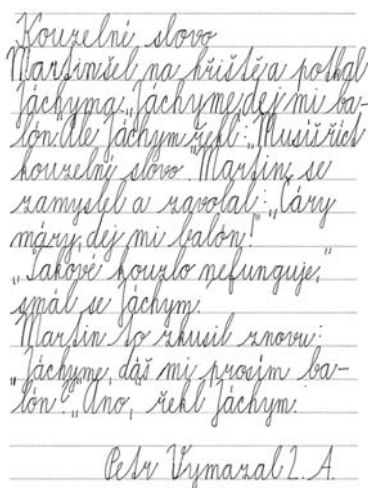 Kouzelné slovo
Martin šel na hřiště a potkal
Jáchyma. „Jáchyme, dej mi ba-
lón." Ale Jáchym řekl: „Musíš říct
kouzelné slovo." Martin se
zamyslel a zavolal: „Čáry
máry, dej mi balón!"
„Takové kouzlo nefunguje,"
smál se Jáchym.
Martin to zkusil znovu:
„Jáchyme, dáš mi prosím ba-
lón?" „Ano," řekl Jáchym.
Petr Vymazal 2. A.